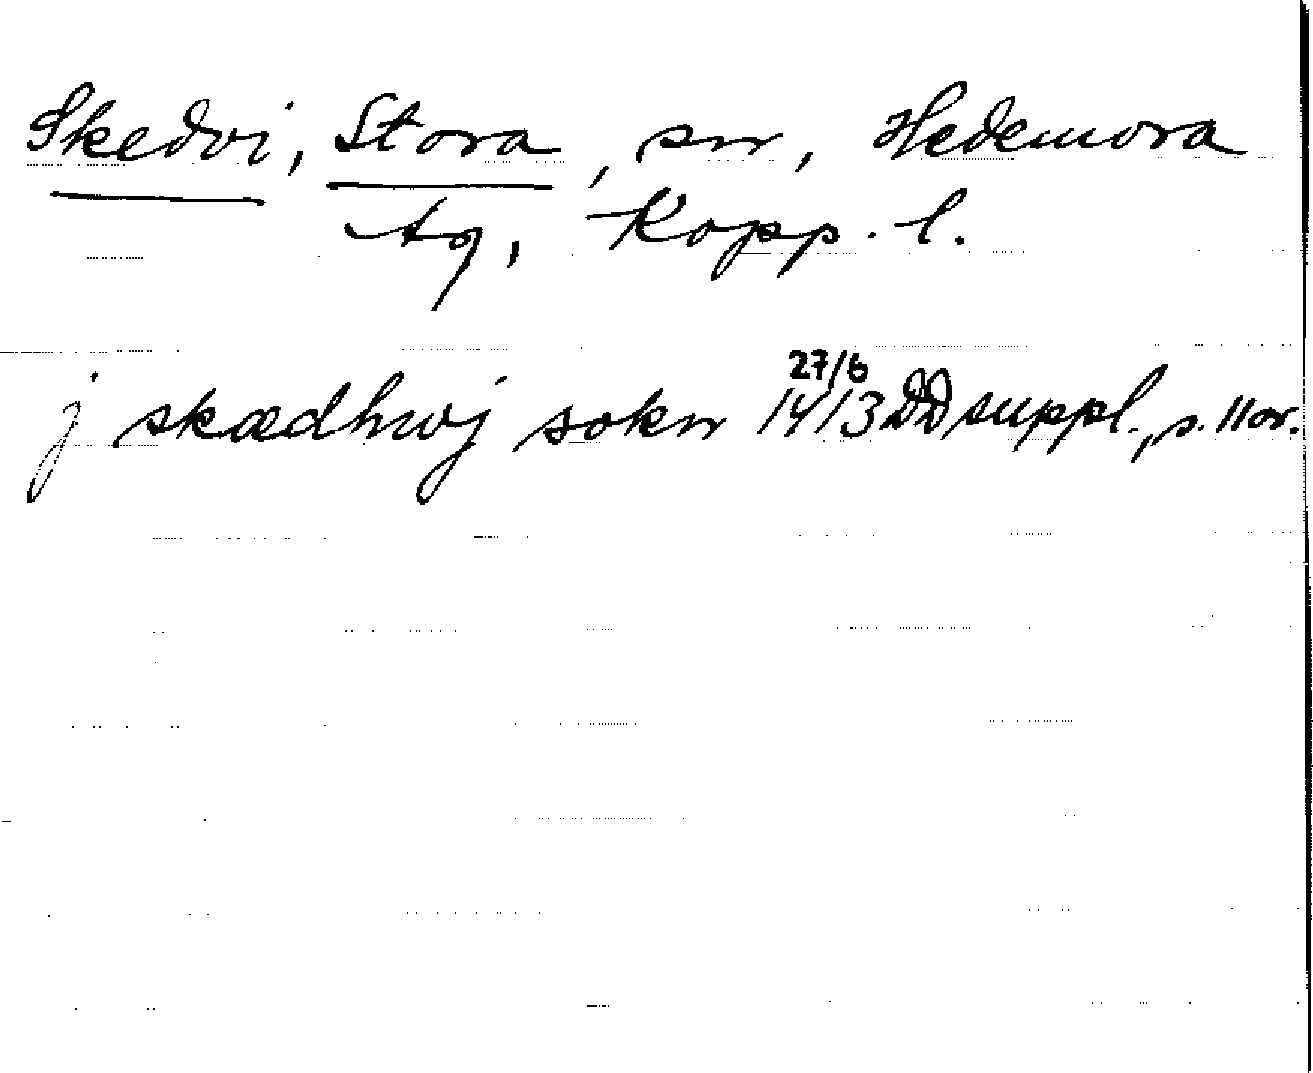 Skedvi, Stora, sn, Hedemora
tg, Kopp. l.
27/6
j skædhwj sokn 1413 DD suppl., s. 11 or.